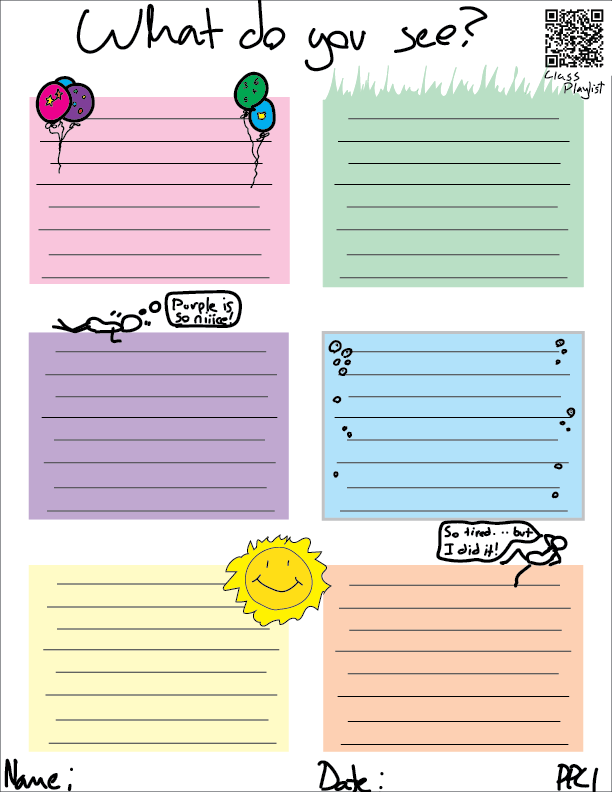 What do you see?
Class
Playlist
Purple is
so niiice!
So tired... but
I did it!
Name:
Date:
PPC1